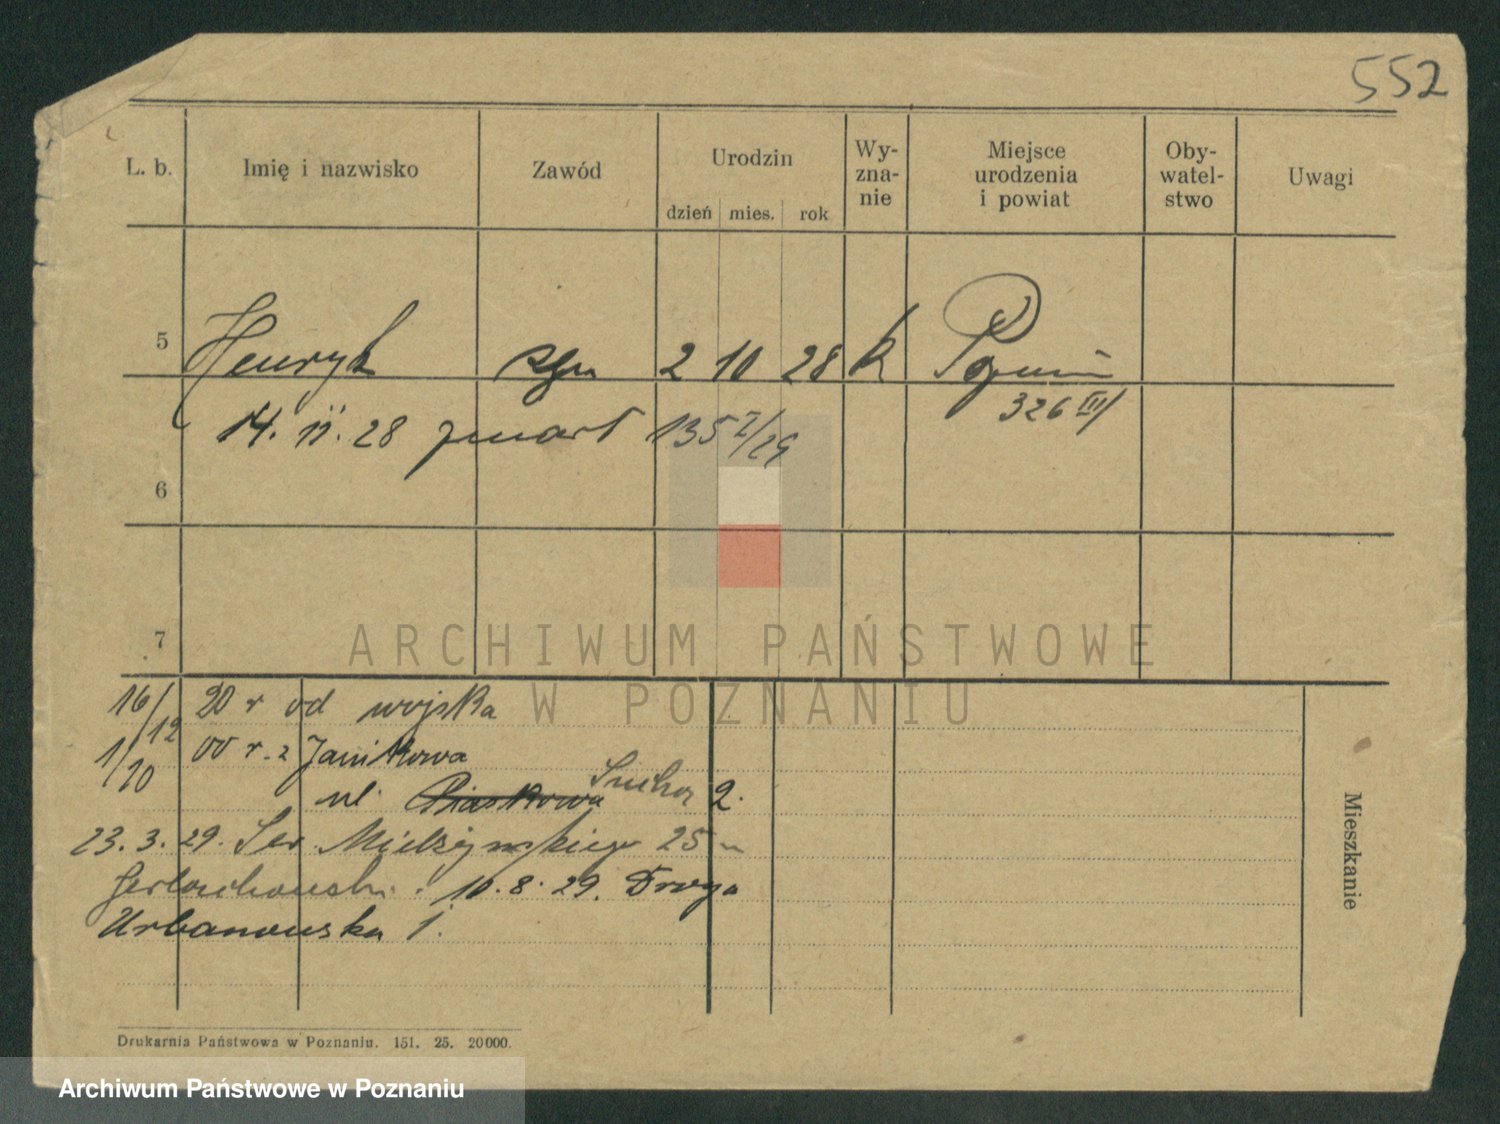 552
L. b. Imię i nazwisko Zawód Urodzin Wy-zna-nie Miejsce urodzenia i powiat Oby-watel-stwo Uwagi
dzień mies. rok
5 Henryk syn 2 10 28 k Poznań
326 III/
14. 11. 28 zmarł 135 I/29
6
7
ARCHIWUM PAŃSTWOWE
W POZNANIU
16/12 20 r od wojska
1/20 00 r. z Janikowa
ul. Piaskowa Sucha 2.
23. 3. 29. Sew. Mielżyńskiego 25
10. 8. 29. Droga
Urbanowska 1.
Mieszkanie
Drukarnia Państwowa w Poznaniu. 151. 25. 20000.
Archiwum Państwowe w Poznaniu